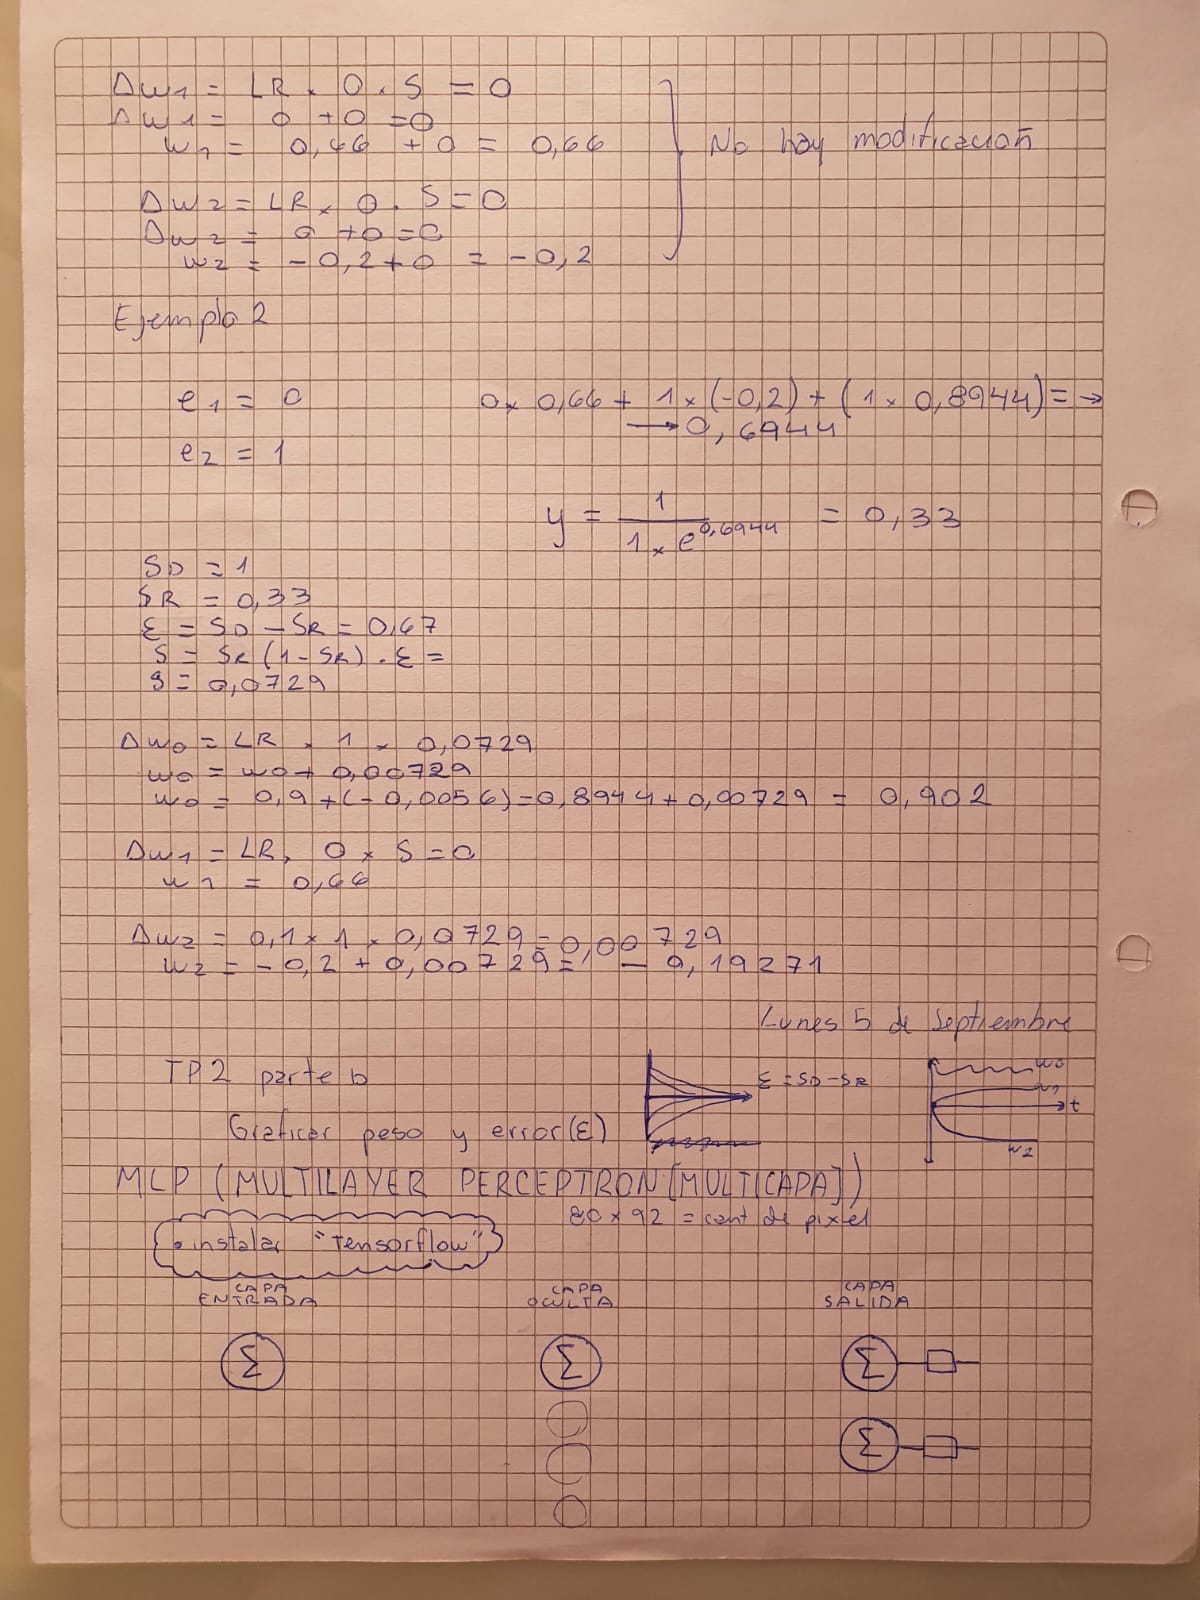 Δw1 = LR × 0 . S = 0
Δw1 = 0 + 0 = 0
w1 = 0,66 + 0 = 0,66
No hay modificación
Δw2 = LR × 0 . S = 0
Δw2 = 0 + 0 = 0
w2 = -0,2 + 0 = -0,2
Ejemplo 2
e1 = 0
0 × 0,66 + 1 × (-0,2) + (1 × 0,8944) = →
→ 0,6944
e2 = 1
y = 1 / 1 × e^0,6944 = 0,33
SD = 1
SR = 0,33
ε = SD - SR = 0,67
S = SR (1 - SR) . ε =
S = 0,0729
Δw0 = LR × 1 × 0,0729
w0 = w0 + 0,00729
w0 = 0,9 + (-0,0056) = 0,8944 + 0,00729 = 0,902
Δw1 = LR × 0 × S = 0
w1 = 0,66
Δw2 = 0,1 × 1 × 0,0729 = 0,00729
w2 = -0,2 + 0,00729 = -0,19271
Lunes 5 de Septiembre
TP2 parte b
ε = SD - SR
w0
w1
t
w2
Graficar peso y error (ε)
MLP (MULTILAYER PERCEPTRON [MULTICAPA])
80 × 92 = cant de pixel
• instalar "Tensorflow"
CAPA ENTRADA
CAPA OCULTA
CAPA SALIDA
Σ Σ Σ
Σ